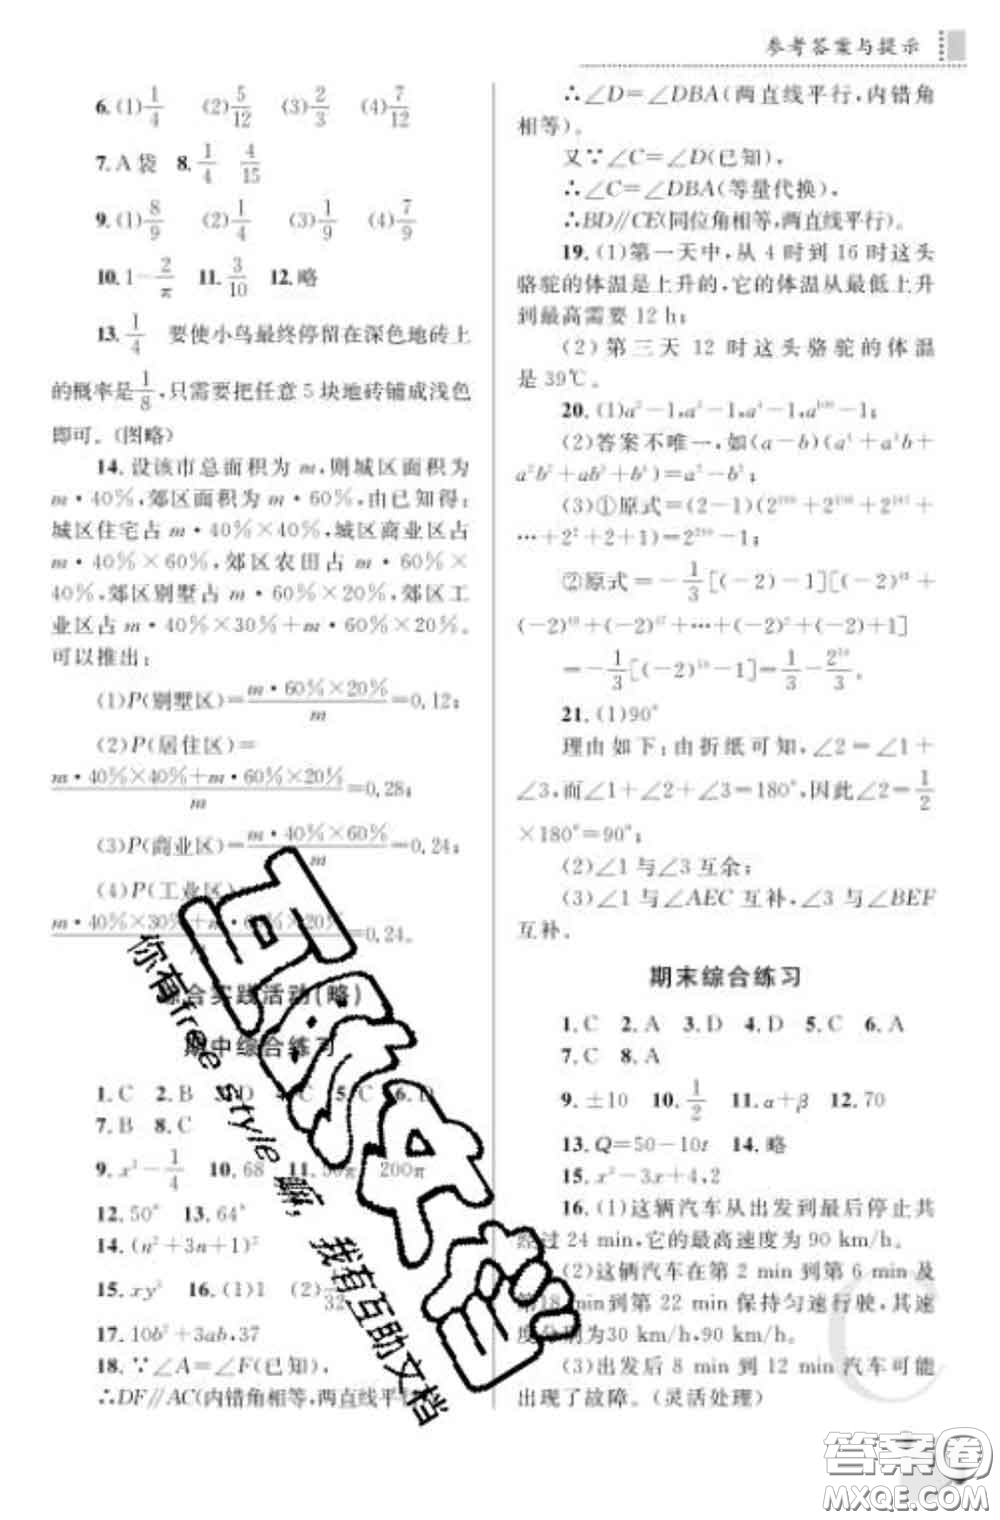 参考答案与提示
6. (1) 1/4 (2) 5/12 (3) 2/3 (4) 7/12
7. A 袋 8. 1/4 4/15
9. (1) 8/9 (2) 1/4 (3) 1/9 (4) 7/9
10. 1−2/π 11. 3/10 12. 略
13. 1/4 要使小鸟最终停留在深色地砖上
的概率是1/8,只需要把任意 5 块地砖铺成浅色
即可。(图略)
14. 设该市总面积为 m,则城区面积为
m・40%,郊区面积为 m・60%,由已知得:
城区住宅占 m・40%×40%,城区商业区占
m・40%×60%,郊区农田占 m・60%×
40%,郊区别墅占 m・60%×20%,郊区工
业区占 m・40%×30%+m・60%×20%。
可以推出:
(1)P(别墅区)=m・60%×20%/m=0.12;
(2)P(居住区)=
m・40%×40%+m・60%×20%/m=0.28;
(3)P(商业区)=m・40%×60%/m=0.24;
(4)P(工业区)
m・40%×30%+m・60%×20%/m=0.24。
综合实践活动(略)
期中综合练习
1. C 2. B 3. D 4. C 5. C 6. D
7. B 8. C
9. x²−1/4 10. 68 11. 50π 200π
12. 50° 13. 64°
14. (n²+3n+1)²
15. xy² 16. (1)1 (2) /32
17. 10b²+3ab,37
18. ∵∠A=∠F(已知),
∴DF∥AC(内错角相等,两直线平行)。
∴∠D=∠DBA(两直线平行,内错角
相等)。
又∵∠C=∠D(已知),
∴∠C=∠DBA(等量代换),
∴BD∥CE(同位角相等,两直线平行)。
19. (1)第一天中,从 4 时到 16 时这头
骆驼的体温是上升的,它的体温从最低上升
到最高需要 12 h;
(2)第三天 12 时这头骆驼的体温
是 39℃。
20. (1)a²−1,a³−1,a⁴−1,a¹⁰⁰−1;
(2)答案不唯一,如(a−b)(a⁴+a³b+
a²b²+ab³+b⁴)=a⁵−b⁵;
(3)①原式=(2−1)(2¹⁹⁹+2¹⁹⁸+2¹⁹⁷+
…+2²+2+1)=2²⁰⁰−1;
②原式=−1/3[(−2)−1][(−2)¹⁹+
(−2)¹⁸+(−2)¹⁷+…+(−2)²+(−2)+1]
=−1/3[(−2)²⁰−1]=1/3−2²⁰/3。
21. (1)90°
理由如下:由折纸可知,∠2=∠1+
∠3,而∠1+∠2+∠3=180°,因此∠2=1/2
×180°=90°;
(2)∠1 与∠3 互余;
(3)∠1 与∠AEC 互补,∠3 与∠BEF
互补。
期末综合练习
1. C 2. A 3. D 4. D 5. C 6. A
7. C 8. A
9. ±10 10. 1/2 11. α+β 12. 70
13. Q=50−10t 14. 略
15. x²−3x+4,2
16. (1)这辆汽车从出发到最后停止共
经过 24 min,它的最高速度为 90 km/h。
(2)这辆汽车在第 2 min 到第 6 min 及
第18 min到第 22 min 保持匀速行驶,其速
度分别为30 km/h,90 km/h。
(3)出发后 8 min 到 12 min 汽车可能
出现了故障。(灵活处理)
你有free style 嘛,我有互助文档
答案圈
MXQE.COM